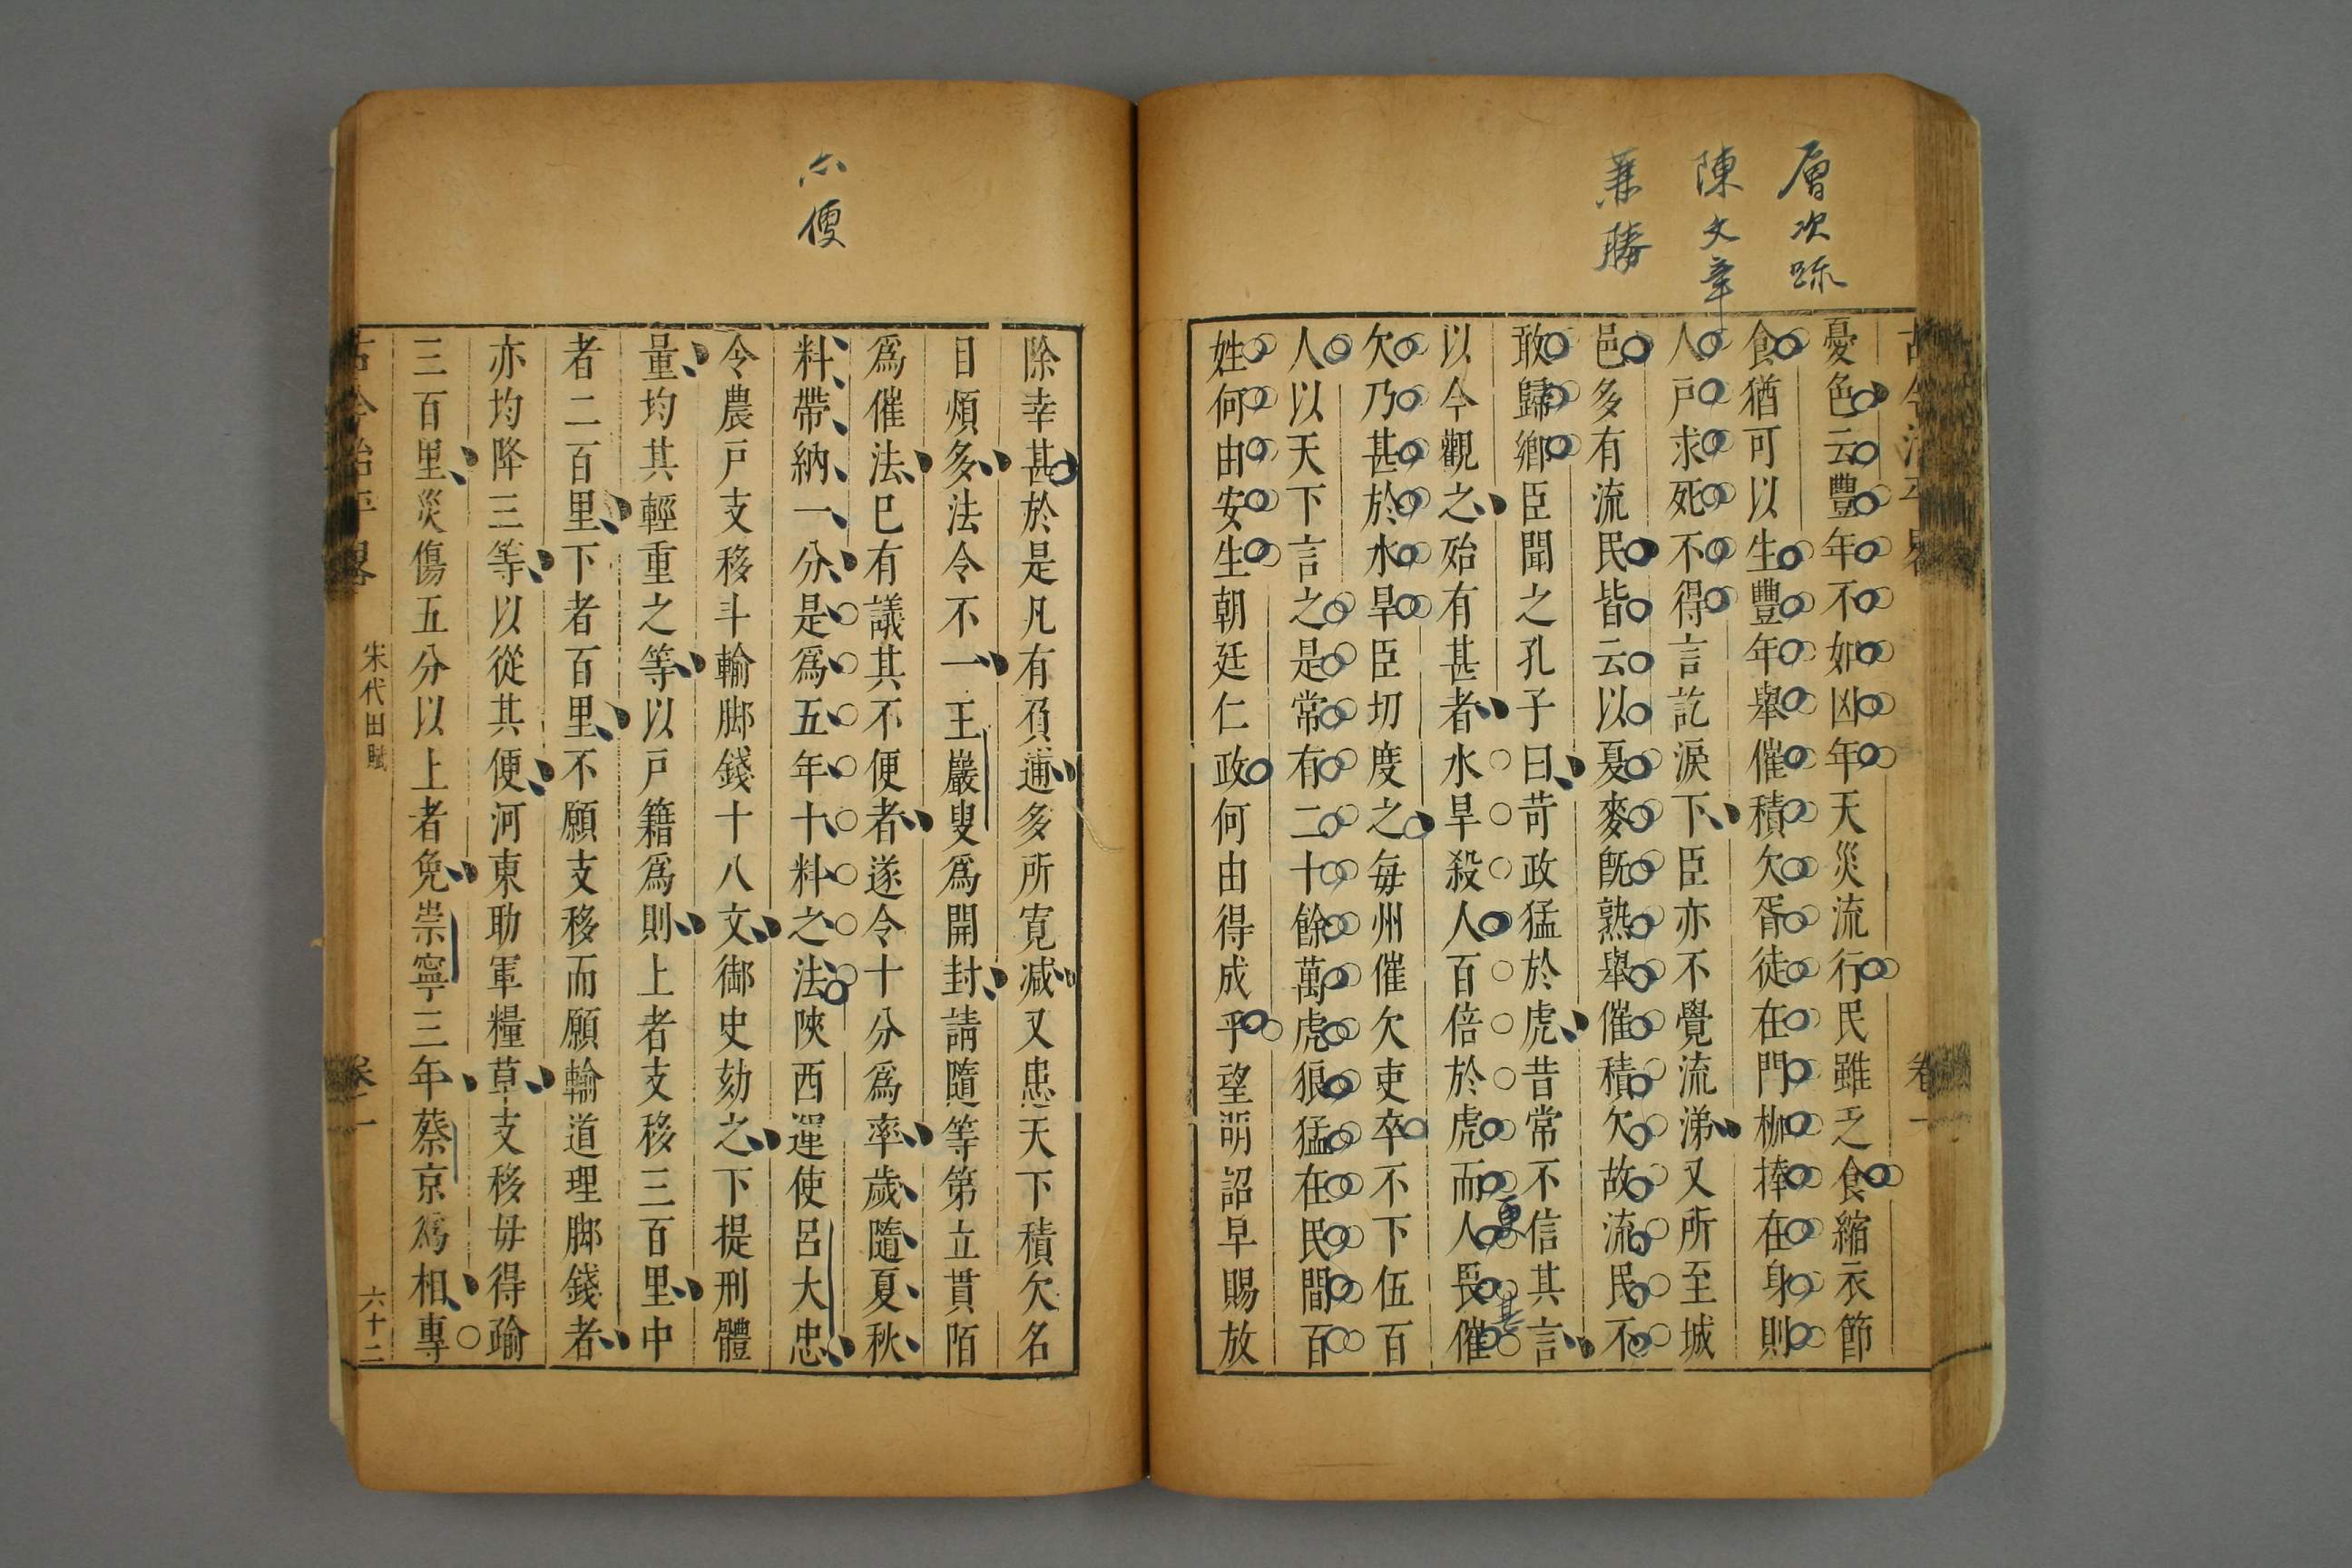 層次疏
陳文章
兼勝
憂色云豐年不如凶年天災流行民雖乏食縮衣節
食猶可以生豐年舉催積欠胥徒在門枷捧在身則
人戶求死不得言訖淚下臣亦不覺流涕又所至城
邑多有流民皆云以夏麥旣熟舉催積欠故流民不
敢歸鄉臣聞之孔子曰苛政猛於虎昔常不信其言
以今觀之殆有甚者水旱殺人百倍於虎而人畏催
更甚
欠乃甚於水旱臣切度之每州催欠吏卒不下伍百
人以天下言之是常有二十餘萬虎狼猛在民間百
姓何由安生朝廷仁政何由得成乎望明詔早賜放
六便
除幸甚於是凡有負逋多所寬減又患天下積欠名
目煩多法令不一王巖叟爲開封請隨等第立貫陌
爲催法已有議其不便者遂令十分爲率歲隨夏秋
料帶納一分是爲五年十料之法陝西運使呂大忠
令農戶支移斗輸脚錢十八文御史劾之下提刑體
量均其輕重之等以戶籍爲則上者支移三百里中
者二百里下者百里不願支移而願輸道理脚錢者
亦均降三等以從其便河東助軍糧草支移毋得踰
三百里災傷五分以上者免崇寧三年蔡京爲相專
古今治平畧 宋代田賦 卷一 六十二